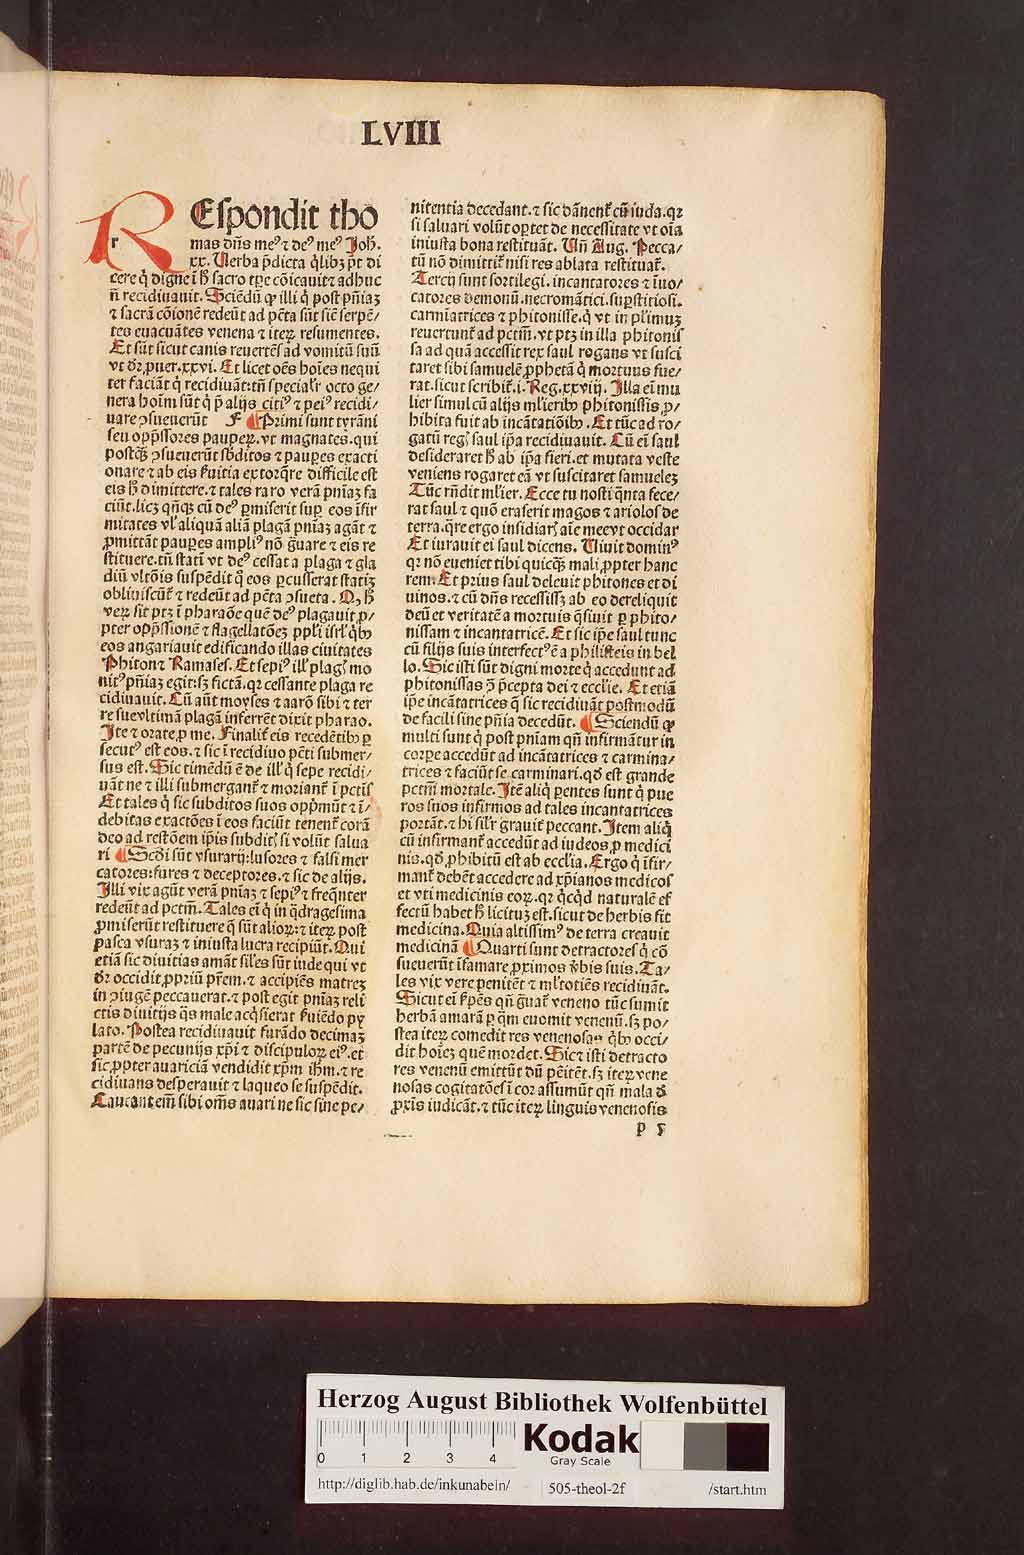 LVIII
REspondit tho
mas dñs meꝰ ⁊ deꝰ meꝰ Joh̃.
xx. Uerba p̃dicta q̃libꝫ p̃t di
cere q̇ digne ĩ h̃ sacro tp̃e cõicauit ⁊ adhuc
ñ recidiuauit. Sciẽdũ ꝙ illi q̇ post pñiaꝫ
⁊ sacrã cõionẽ redeũt ad pctã sũt sic̃ serpẽ/
tes euacuãtes venena ⁊ iteꝝ resumentes.
Et sũt sicut canis reuertẽs ad vomitũ suũ
vt dr̃ ꝓuer. xxvi. Et licet oẽs hoĩes nequi
ter faciãt q̇ recidiuãt: tñ specialr̃ octo ge/
nera hoĩm sũt q̇ p̃ alijs citiꝰ ⁊ peiꝰ recidi/
uare ↄsueuerũt F ¶ Primi sunt tyrãni
seu opp̃ssores paupeꝝ. vt magnates. qui
postq̃ꝫ ↄsueuerũt sb̃ditos ⁊ paupes exacti
onare ⁊ ab eis ſuitia extorq̃re difficile est
eis h̃ dimittere. ⁊ tales raro verã pñiaꝫ fa
ciũt. licꝫ qñqꝫ cũ deꝰ ꝑmiserit suꝑ eos ĩfir
mitates vl̃ aliquã aliã plagã pñiaꝫ agãt ⁊
ꝓmittãt pauꝑes ampliꝰ nõ g̃uare ⁊ eis re
stituere. tñ statĩ vt deꝰ cessat a plaga ⁊ gla
diũ vltõis suspẽdit q̇ eos ꝑcusserat statiꝫ
obliuiscũt̃ ⁊ redeũt ad pctã ↄsueta. Q, h̃
veꝝ sit ptꝫ ĩ pharaõe quẽ deꝰ plagauit ꝓ/
pter opp̃ssionẽ ⁊ flagellatõeꝫ ppl̃i isrl̃ q̇bꝰ
eos angariauit edificando illas ciuitates
Phiton ⁊ Ramases. Et sepiꝰ ill̃ plag̃ mo
nitꝰ pñiaꝫ egit: sꝫ fictã. qꝛ cessante plaga re
cidiuauit. Cũ aũt moyses ⁊ aarõ sibi ⁊ ter
re sue vltimã plagã inferrẽt dixit pharao.
Ite ⁊ orate ꝓ me. Finalit̃ eis recedẽtibꝰ ꝑ
secutꝰ est eos. ⁊ sic ĩ recidiuo pctĩ submer/
sus est. Sic timẽdũ ẽ de ill̃ q̇ sepe recidi/
uãt ne ⁊ illi submergant̃ ⁊ moriant̃ ĩ pctis
Et tales q̇ sic subditos suos opp̃mũt ⁊ ĩ/
debitas exactões ĩ eos faciũt tenent̃ corã
deo ad restõem ip̃is subdit̃ si volũt salua
ri ¶ Scd̃i sũt vsurarij: lusores ⁊ falsi mer
catores: fures ⁊ deceptores. ⁊ sic de alijs.
Illi vix agũt verã pñiaꝫ ⁊ sepiꝰ ⁊ freq̃nter
redeũt ad pctm̃. Tales eĩ q̇ in q̃dragesima
ꝓmiserũt restituere q̃ sũt alioꝝ: ⁊ iteꝝ post
pasca vsuraꝫ ⁊ iniusta lucra recipiũt. Qui
etiã sic diuitias amãt sil̃es sũt iude qui vt
dr̃ occidit ꝓpriũ pr̃em. ⁊ accipiẽs matreꝫ
in ↄiugẽ peccauerat. ⁊ post egit pñiaꝫ reli
ctis diuitijs q̃s male acq̃sierat ſuiẽdo py
lato. Postea recidiuauit furãdo decimaꝫ
partẽ de pecunijs xp̃i ⁊ discipuloꝝ eiꝰ. et
sic ꝓpter auariciã vendidit xp̃m ihm̃. ⁊ re
cidiuans desperauit ⁊ laqueo se suspẽdit.
Caueant em̃ sibi om̃s auari ne sic sine pe/
nitentia decedant. ⁊ sic dãnent̃ cũ iuda. qꝛ
si saluari volũt oꝑtet de necessitate vt oĩa
iniusta bona restituãt. Uñ Aug. Pecca/
tũ nõ dimittit̃ nisi res ablata restituat̃.
Tercij sunt sortilegi. incantatores ⁊ ĩuo/
catores demonũ. necromãtici. suꝑstitiosi.
carmiatrices ⁊ phitonisse. q̇ vt in pl̃imuꝫ
reuertunt̃ ad pctm̃. vt ptꝫ in illa phitonis
sa ad quã accessit rex saul rogans vt susci
taret sibi samuelẽ ꝓphetã q̇ mortuus fue/
rat. sicut scribit̃. i. Reg. xxviij. Illa eĩ mu
lier simul cũ alijs ml̃ieribꝰ phitonissis ꝓ/
hibita fuit ab incãtatiõibꝰ. Et tũc ad ro/
gatũ reg̃ saul ip̃a recidiuauit. Cũ eĩ saul
desideraret h̃ ab ip̃a fieri. et mutata veste
veniens rogaret eã vt suscitaret samueleꝫ
Tũc rñdit ml̃ier. Ecce tu nosti q̃nta fece/
rat saul ⁊ quõ eraserit magos ⁊ ariolos de
terra. q̃re ergo insidiar̃ aĩe mee vt occidar
Et iurauit ei saul dicens. Uiuit dominꝰ
qꝛ nõ eueniet tibi quicq̃ꝫ mali ꝓpter hanc
rem. Et prius saul deleuit phitones et di
uinos. ⁊ cũ dñs recessissꝫ ab eo dereliquit
deũ et veritatẽ a mortuis q̃siuit ꝑ phito/
nissam ⁊ incantatricẽ. Et sic ip̃e saul tunc
cũ filijs suis interfectꝰ ẽ a philisteis in bel
lo. Sic isti sũt digni morte q̇ accedunt ad
phitonissas ↄ̃ p̃cepta dei ⁊ eccl̃ie. Et etiã
ip̃e incãtatrices q̃ sic recidiuãt postmodũ
de facili sine pñia decedũt. ¶ Sciendũ ꝙ
multi sunt q̇ post pñiam qñ infirmãtur in
corꝑe accedũt ad incãtatrices ⁊ carmina/
trices ⁊ faciũt se carminari. qd̃ est grande
pctm̃ mortale. Itẽ aliq̇ ꝑentes sunt q̇ pue
ros suos infirmos ad tales incantatrices
portãt. ⁊ hi sil̃r grauit̃ peccant. Item aliq̇
cũ infirmant̃ accedũt ad iudeos ꝓ medici
nis. qd̃ ꝓhibitũ est ab eccl̃ia. Ergo q̇ ĩfir/
mant̃ debẽt accedere ad xp̃ianos medicos
et vti medicinis eoꝝ. qꝛ q̇cq̇d naturalẽ ef
fectũ habet h̃ licituꝫ est. sicut de herbis fit
medicina. Quia altissimꝰ de terra creauit
medicinã ¶ Quarti sunt detractores q̇ cõ
sueuerũt ĩfamare ꝓximos v̾bis suis. Ta/
les vix vere penitẽt ⁊ ml̃totiẽs recidiuãt.
Sicut eĩ ſpẽs qñ g̃uat̃ veneno tũc sumit
herbã amarã ꝑ q̃m euomit venenũ. sꝫ po/
stea iteꝝ comedit res venenosas q̇bꝰ occi/
dit hoĩeꝫ quẽ mordet. Sic ⁊ isti detracto
res venenũ emittũt dũ pẽitẽt. sꝫ iteꝝ vene
nosas cogitatões ĩ cor assumũt qñ mala d̾
ꝓxĩs iudicãt. ⁊ tũc iteꝝ linguis venenosis
p 5
Herzog August Bibliothek Wolfenbüttel
0 1 2 3 4
Kodak
Gray Scale
http://diglib.hab.de/inkunabeln/ 505-theol-2f /start.htm